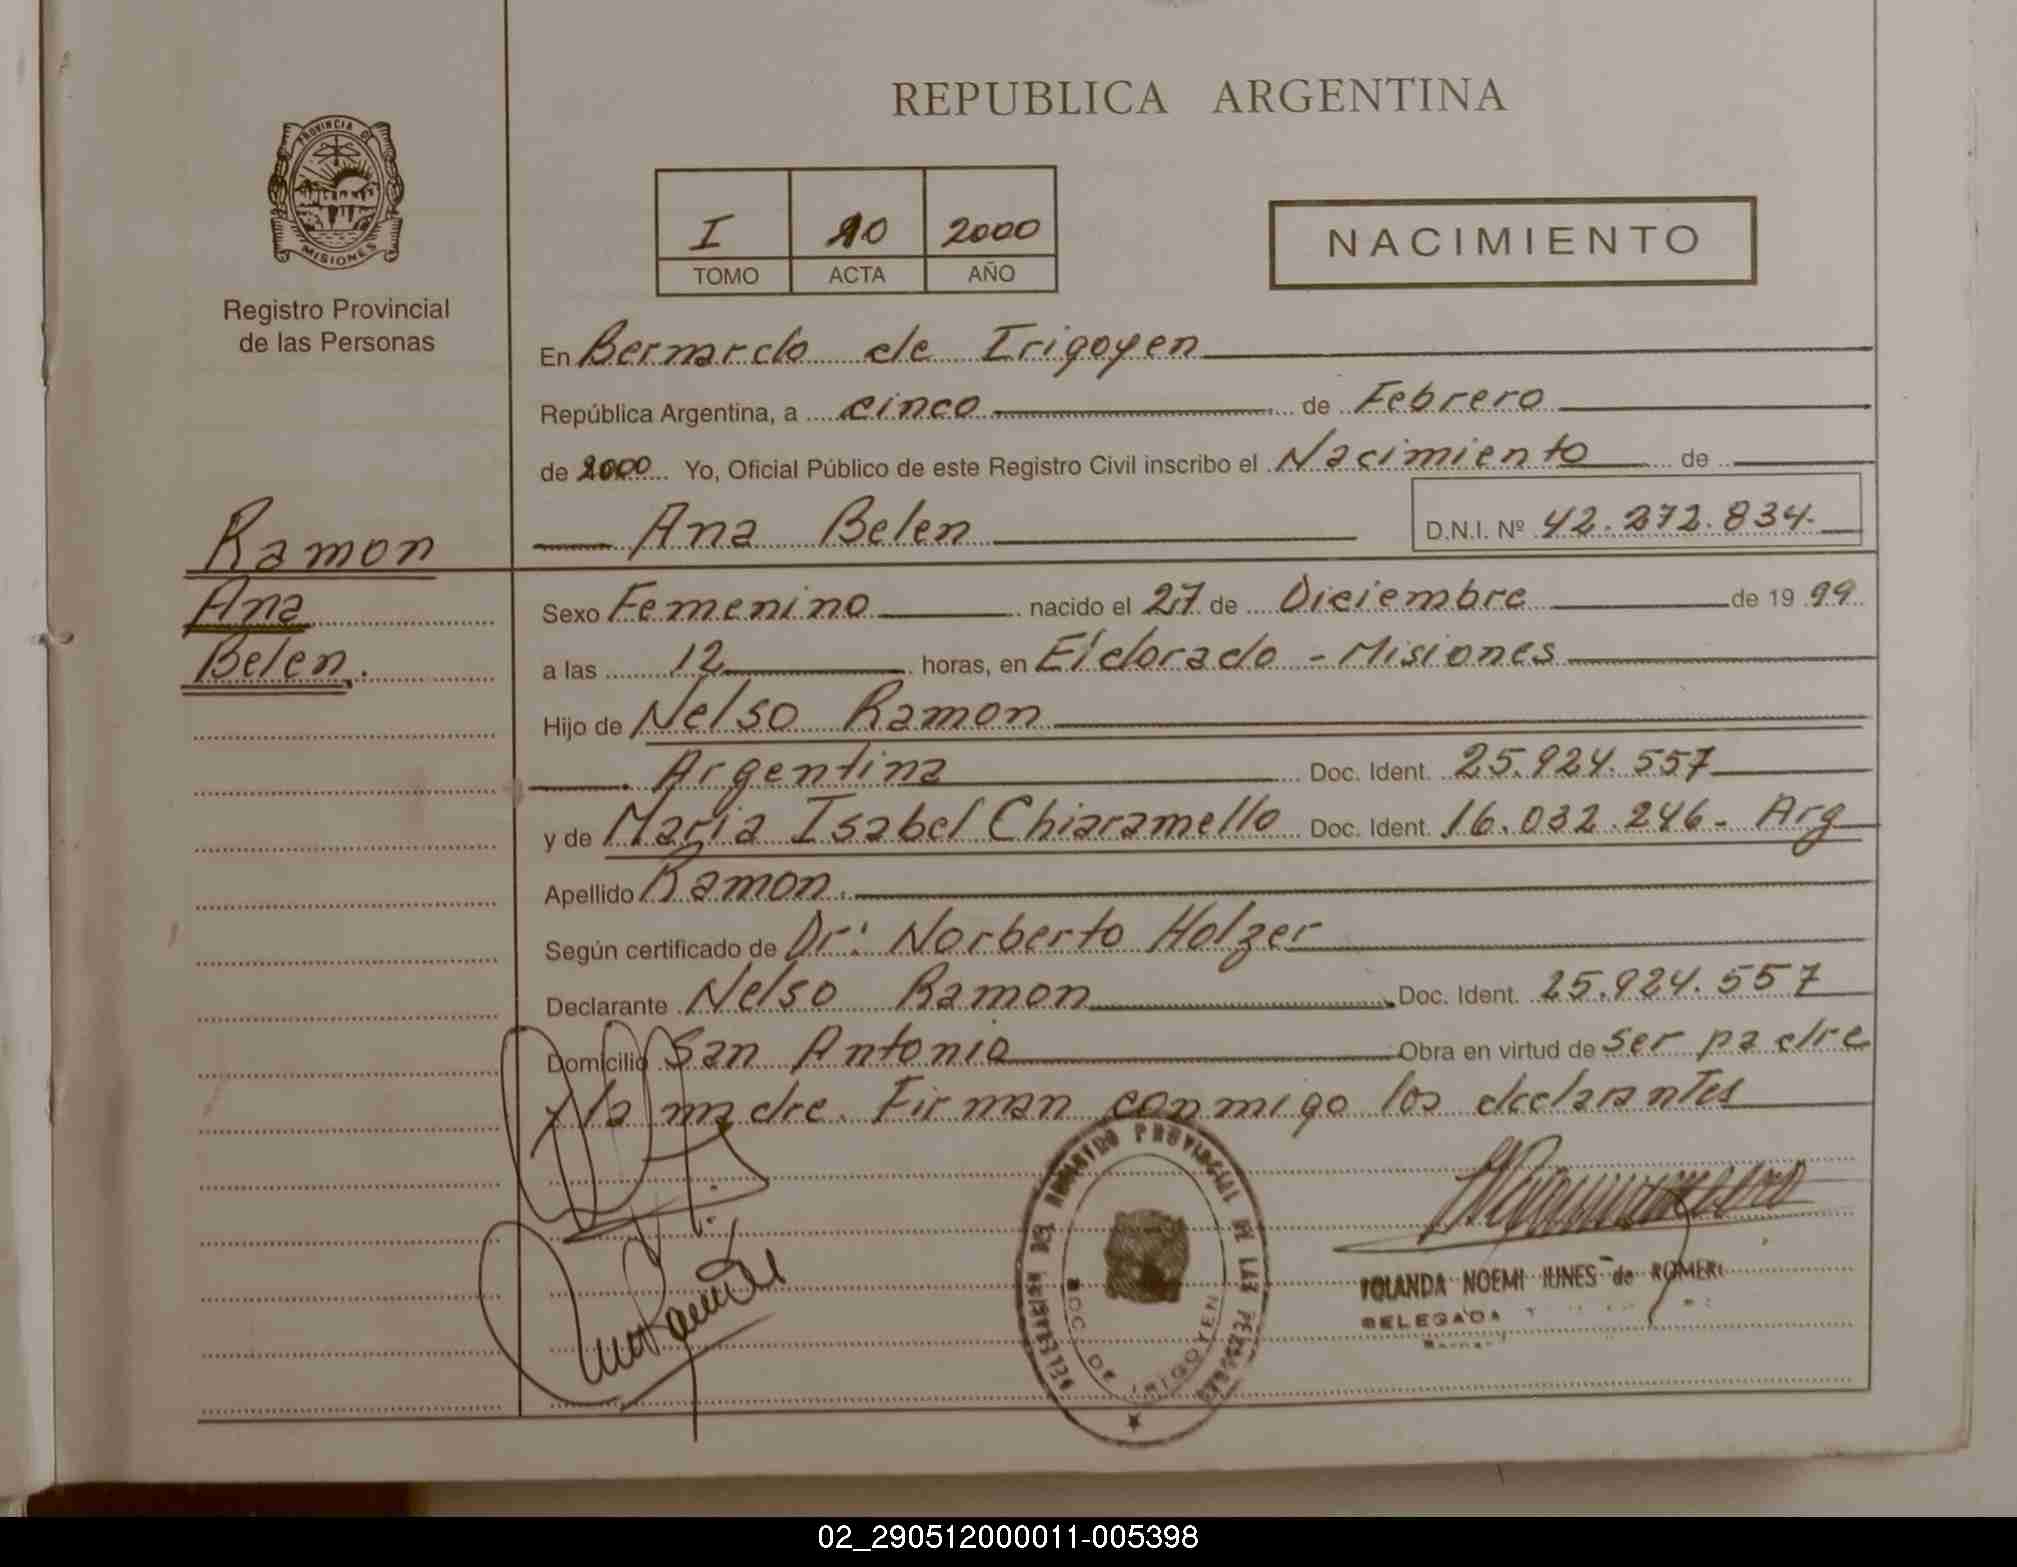 REPUBLICA ARGENTINA
PROVINCIA DE MISIONES
Registro Provincial
de las Personas
I 10 2000
TOMO ACTA AÑO
NACIMIENTO
En Bernardo de Irigoyen
República Argentina, a cinco de Febrero
de 2000 Yo, Oficial Público de este Registro Civil inscribo el Nacimiento de
Ana Belen D.N.I. Nº 42.272.834.
Ramon
Ana
Belen.
Sexo Femenino nacido el 27 de Diciembre de 19 99
a las 12 horas, en Eldorado - Misiones
Hijo de Nelso Ramon
Argentina Doc. Ident. 25.924.557
y de Maria Isabel Chiaramello Doc. Ident. 16.032.246- Arg
Apellido Ramon.
Según certificado de Dr: Norberto Holzer
Declarante Nelso Ramon Doc. Ident. 25.924.557
Domicilio San Antonio Obra en virtud de ser padre
y la madre. Firman conmigo los declarantes
REGISTRO PROVINCIAL DE LAS PERSONAS
BDO. DE IRIGOYEN
YOLANDA NOEMI de
DELEGADA
02_290512000011-005398